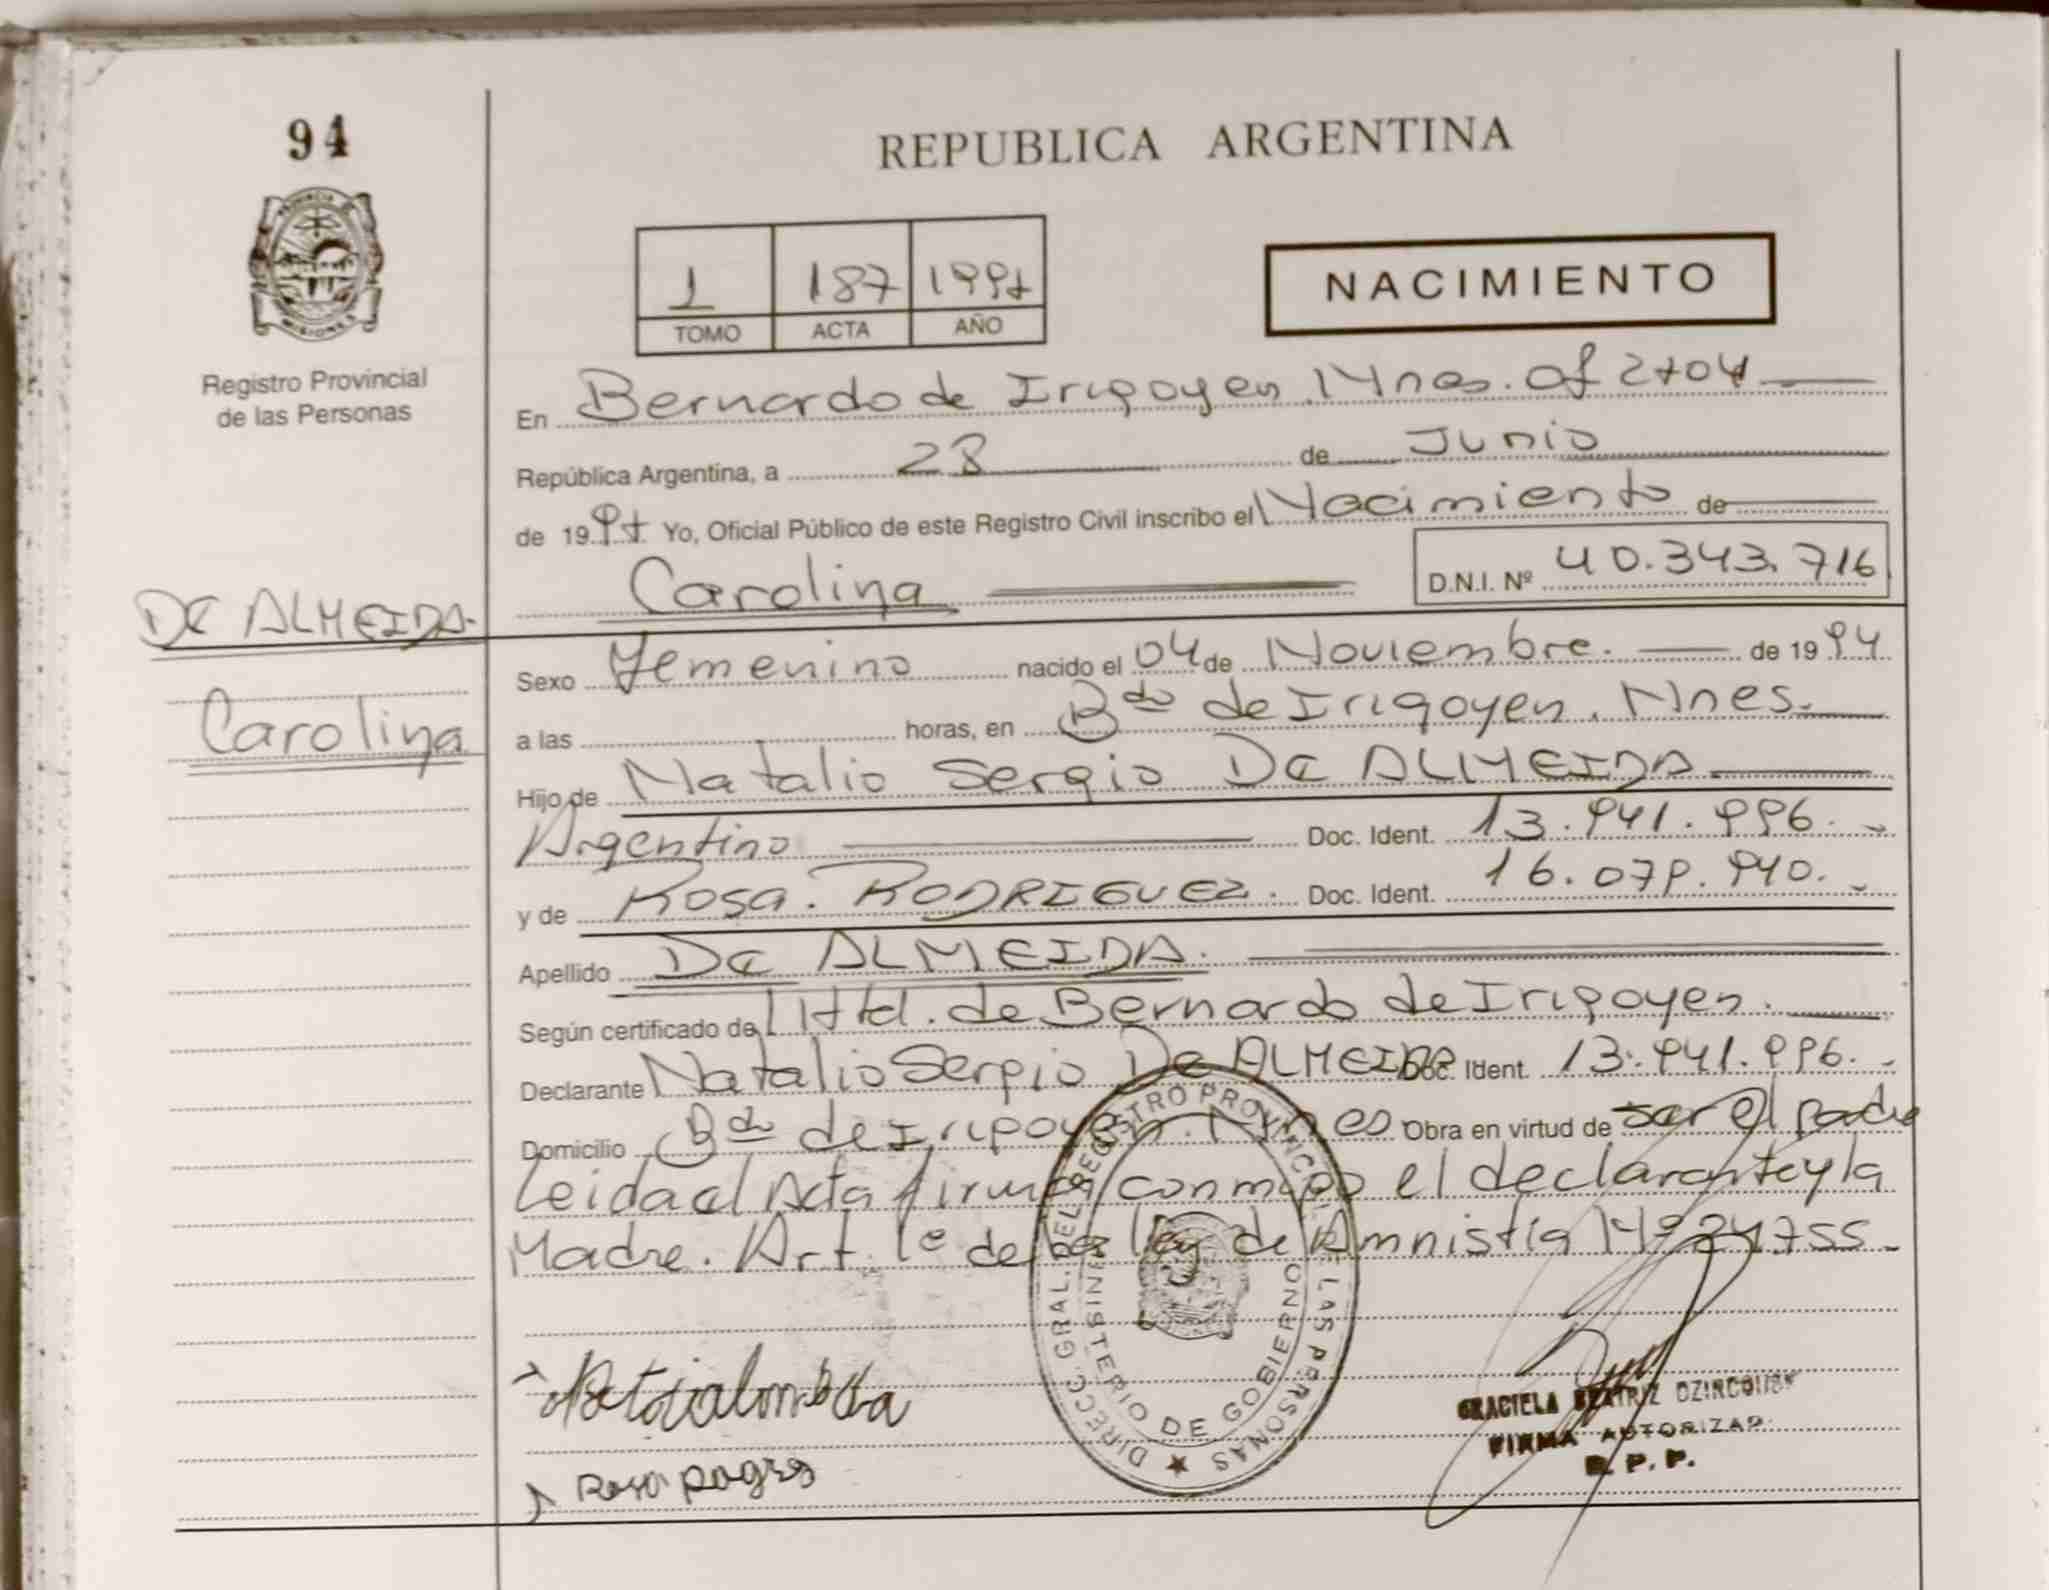 94
REPUBLICA ARGENTINA
PROVINCIA DE
MISIONES
Registro Provincial
de las Personas
1 187 1997
TOMO ACTA AÑO
NACIMIENTO
En Bernardo de Irigoyen. Mnes. Of 2704
República Argentina, a 28 de Junio
de 1997 Yo, Oficial Público de este Registro Civil inscribo el Nacimiento de
Carolina D.N.I. Nº 40.343.716
DE ALMEIDA.
Carolina
Sexo Femenino nacido el 04 de Noviembre. de 1994
a las horas, en Bdo de Irigoyen. Mnes.
Hijo de Natalio Sergio DE ALMEIDA.
Argentino Doc. Ident. 13.941.996.
y de Rosa. RODRIGUEZ. Doc. Ident. 16.079.940.
Apellido DE ALMEIDA.
Según certificado de Htd. de Bernardo de Irigoyen.
Declarante Natalio Sergio DE ALMEIDA Doc. Ident. 13.941.996.
Domicilio Bdo de Irigoyen. Mnes Obra en virtud de ser el padre
Leida el Acta firman conmigo el declarante y la
Madre. Art. 1º de la ley de Amnistia Nº 24755
DIRECC. GRAL. DEL REGISTRO PROVINCIAL DE LAS PERSONAS
MINISTERIO DE GOBIERNO
Rosa
GRACIELA BEATRIZ
FIRMA AUTORIZAD
R. P. P.